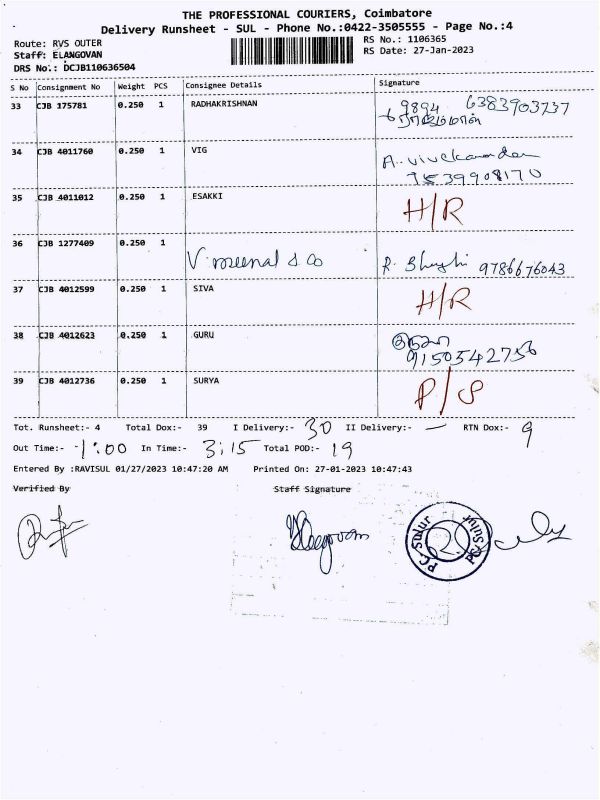 THE PROFESSIONAL COURIERS, Coimbatore
Delivery Runsheet - SUL - Phone No.:0422-3505555 - Page No.:4
Route: RVS OUTER RS No.: 1106365
Staff: ELANGOVAN RS Date: 27-Jan-2023
DRS No.: DCJB110636504
S No Consignment No Weight PCS Consignee Details Signature
33 CJB 175781 0.250 1 RADHAKRISHNAN 9894 6383903737
34 CJB 4011760 0.250 1 VIG A. Vivekanandan
9539908170
35 CJB 4011012 0.250 1 ESAKKI H/R
36 CJB 1277409 0.250 1 V. meenal & co 9786676043
37 CJB 4012599 0.250 1 SIVA H/R
38 CJB 4012623 0.250 1 GURU
9150542756
39 CJB 4012736 0.250 1 SURYA P/S
Tot. Runsheet:- 4 Total Dox:- 39 I Delivery:- 30 II Delivery:- — RTN Dox:- 9
Out Time:- 1:00 In Time:- 3:15 Total POD:- 19
Entered By :RAVISUL 01/27/2023 10:47:20 AM Printed On: 27-01-2023 10:47:43
Verified By Staff Signature
Elangovan
PC, Sulur PC, Sulur